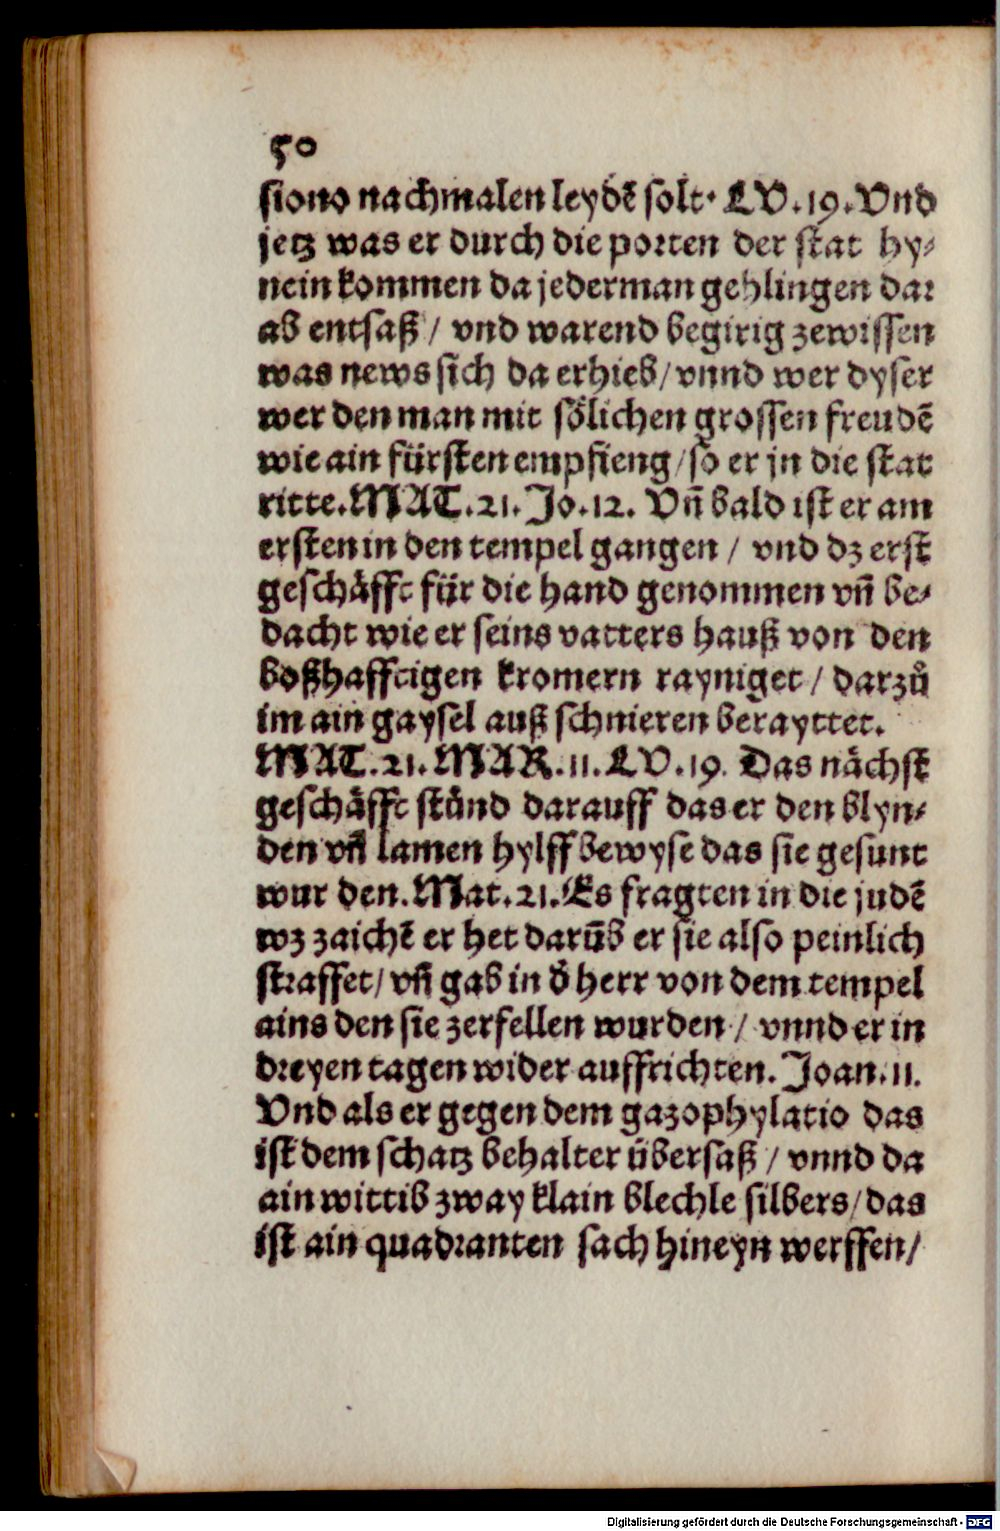 50
siono nachmalen leydẽ solt. LV. 19. Vnd
jetz was er durch die porten der stat hy⸗
nein kommen da jederman gehlingen dar
ab entsaß / vnd warend begirig zewissen
was news sich da erhieb / vnnd wer dyser
wer den man mit sölichen grossen freudẽ
wie ain fürsten empfieng / so er jn die stat
ritte. MAT. 21. Jo. 12. Vñ bald ist er am
ersten in den tempel gangen / vnd dz erst
geschäfft für die hand genommen vñ be⸗
dacht wie er seins vatters hauß von den
boßhafftigen kromern rayniget / darzů
im ain gaysel auß schnieren berayttet.
MAT. 21. MAR. 11. LV. 19. Das nächst
geschäfft stůnd darauff das er den blyn⸗
den vñ lamen hylff bewyse das sie gesunt
wur den. Mat. 21. Es fragten in die judẽ
wz zaichẽ er het darũb er sie also peinlich
straffet / vñ gab in d̕ herr von dem tempel
ains den sie zerfellen wurden / vnnd er in
dreyen tagen wider auffrichten. Joan. 11.
Vnd als er gegen dem gazophylatio das
ist dem schatz behalter übersaß / vnnd da
ain wittib zway klain blechle silbers / das
ist ain quadranten sach hineyn werffen /
Digitalisierung gefördert durch die Deutsche Forschungsgemeinschaft - DFG